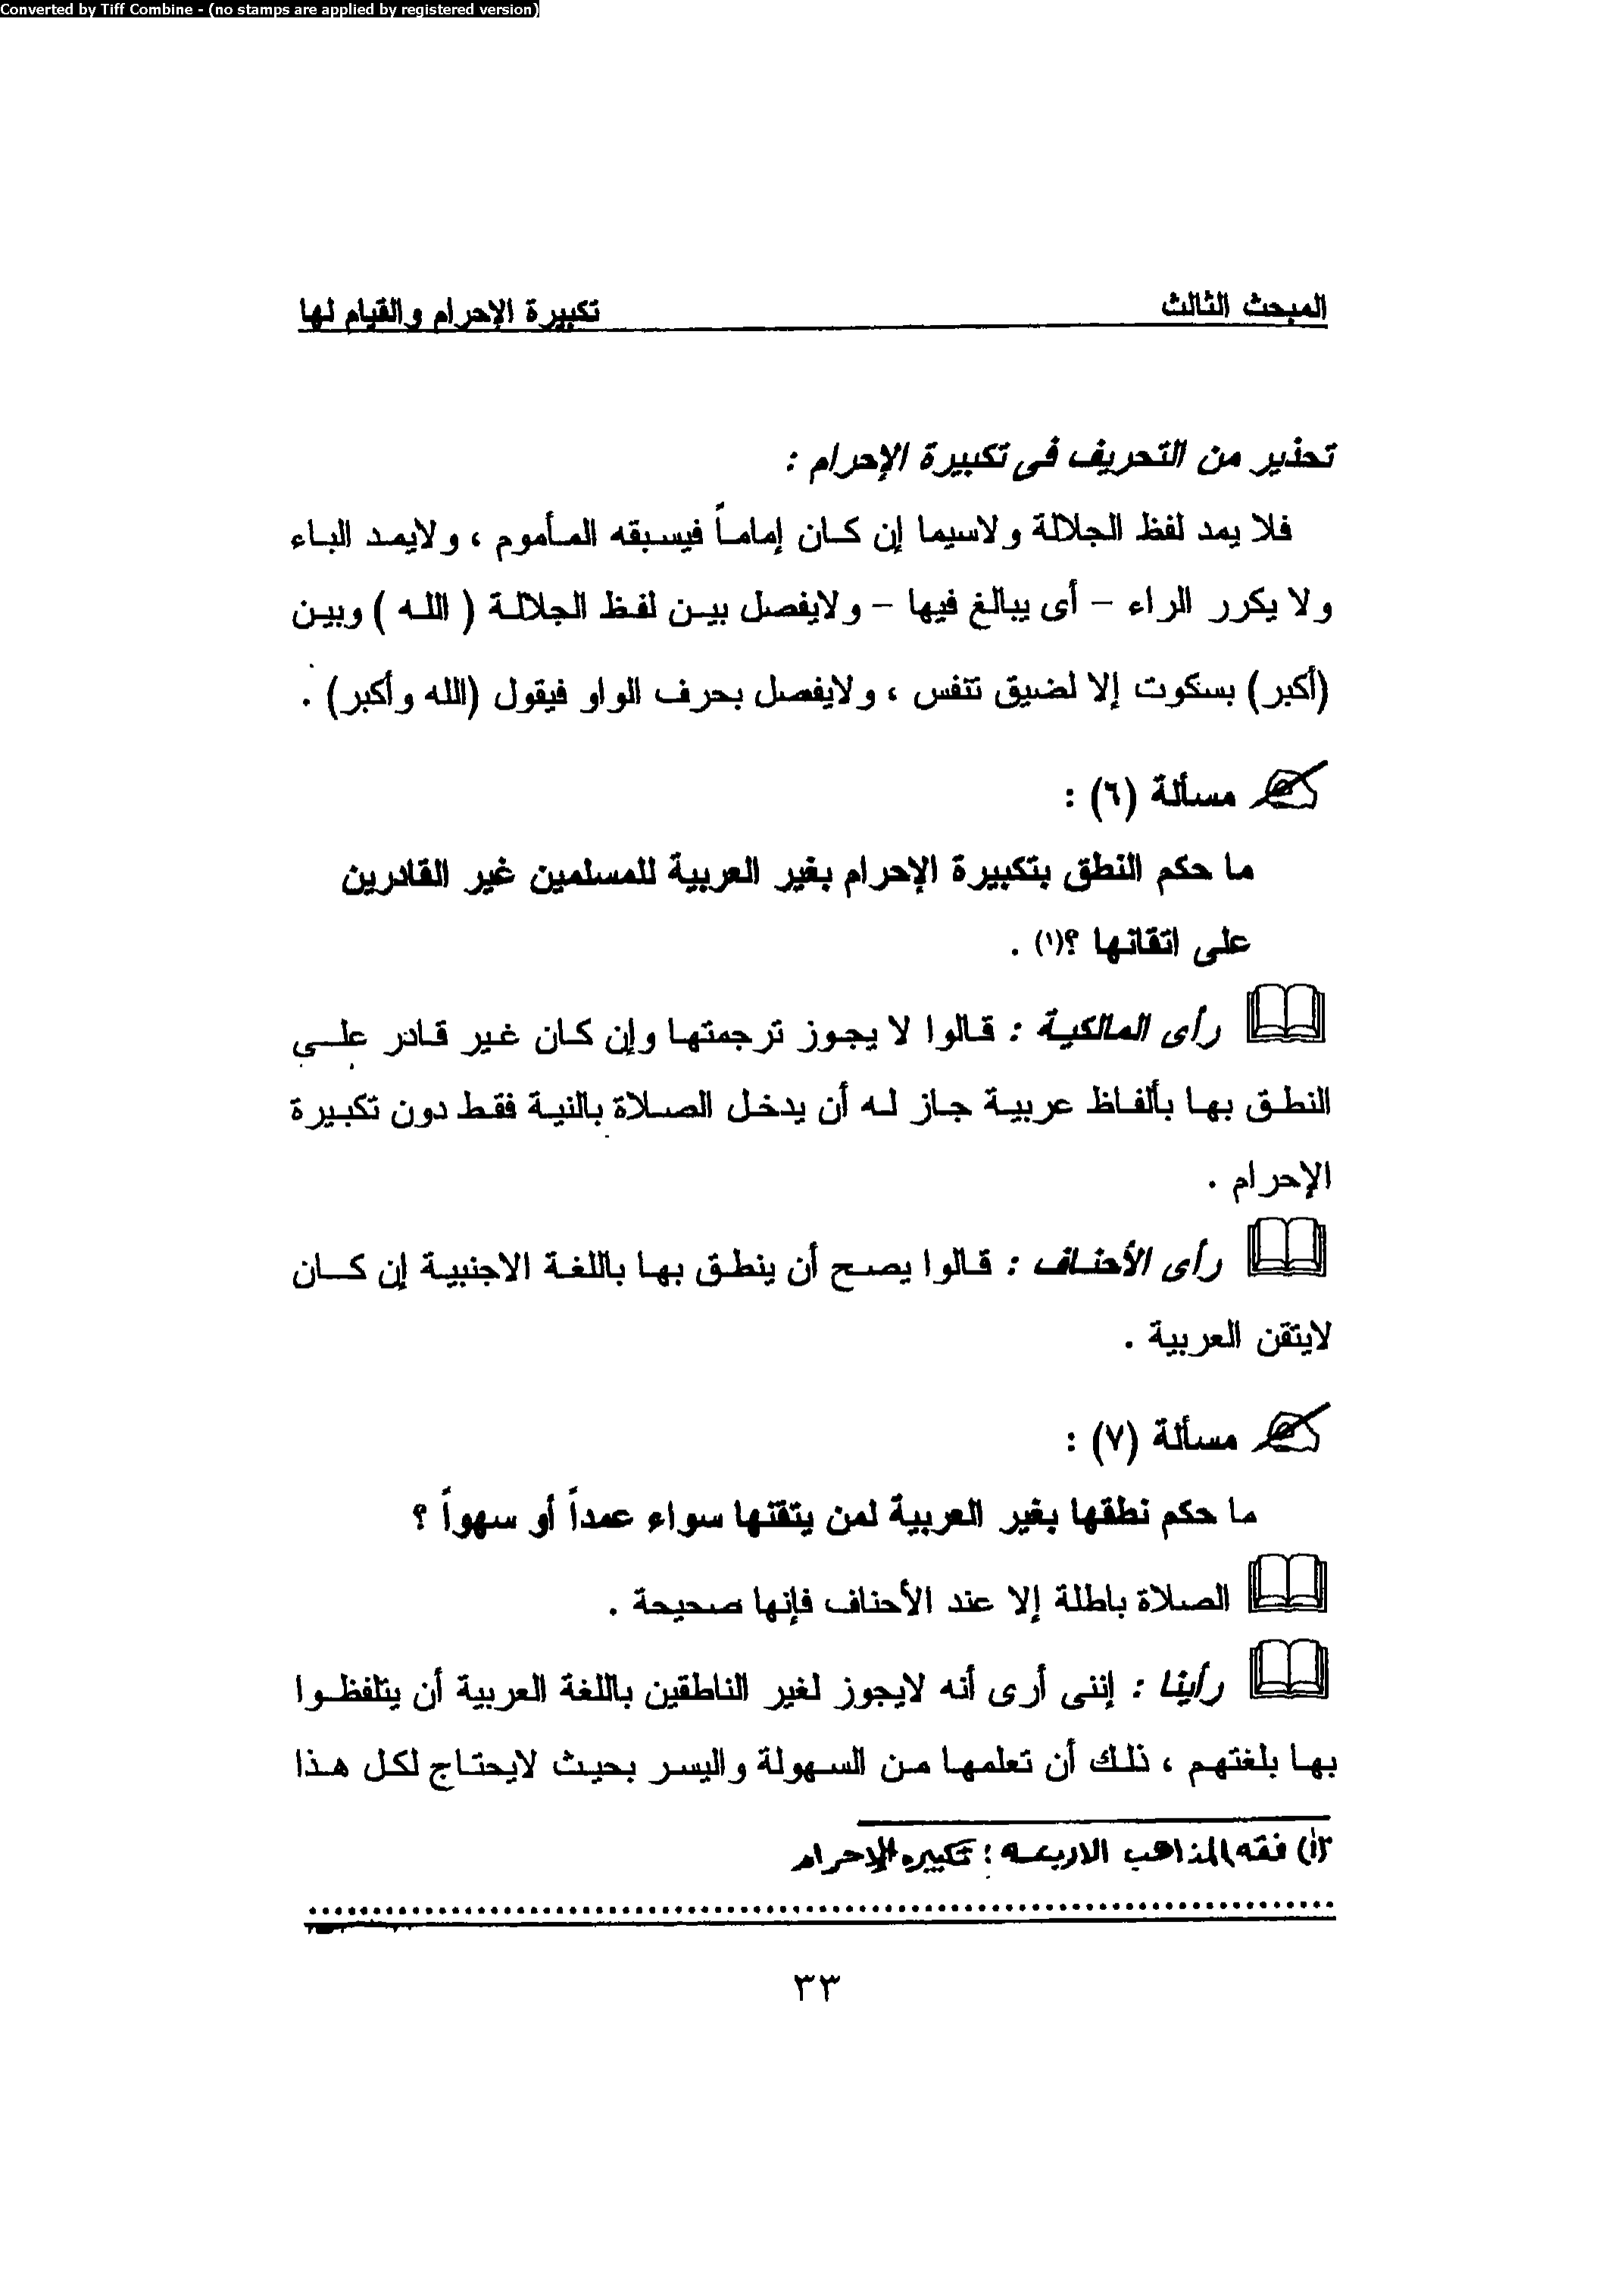 Converted by Tiff Combine - (no stamps are applied by registered version)
المبحث الثالث تكبيرة الإحرام والقيام لها
تحذير من التحريف فى تكبيرة الإحرام :
فلا يمد لفظ الجلالة ولاسيما إن كان إماماً فيسبقه المأموم ، ولايمد الباء
ولا يكرر الراء - أى يبالغ فيها - ولايفصل بين لفظ الجلالة ( الله ) وبين
(أكبر) بسكوت إلا لضيق تنفس ، ولايفصل بحرف الواو فيقول (الله وأكبر) .
مسألة (٦) :
ما حكم النطق بتكبيرة الإحرام بغير العربية للمسلمين غير القادرين
على اتقانها ؟(١) .
رأى المالكية : قالوا لا يجوز ترجمتها وإن كان غير قادر على
النطق بها بألفاظ عربية جاز له أن يدخل الصلاة بالنية فقط دون تكبيرة
الإحرام .
رأى الأحناف : قالوا يصح أن ينطق بها باللغة الاجنبية إن كان
لايتقن العربية .
مسألة (٧) :
ما حكم نطقها بغير العربية لمن يتقنها سواء عمداً أو سهواً ؟
الصلاة باطلة إلا عند الأحناف فإنها صحيحة .
رأينا : إننى أرى أنه لايجوز لغير الناطقين باللغة العربية أن يتلفظوا
بها بلغتهم ، ذلك أن تعلمها من السهولة واليسر بحيث لايحتاج لكل هذا
فقه المذاهب الاربعه : تكبيره الإحرام
٣٣